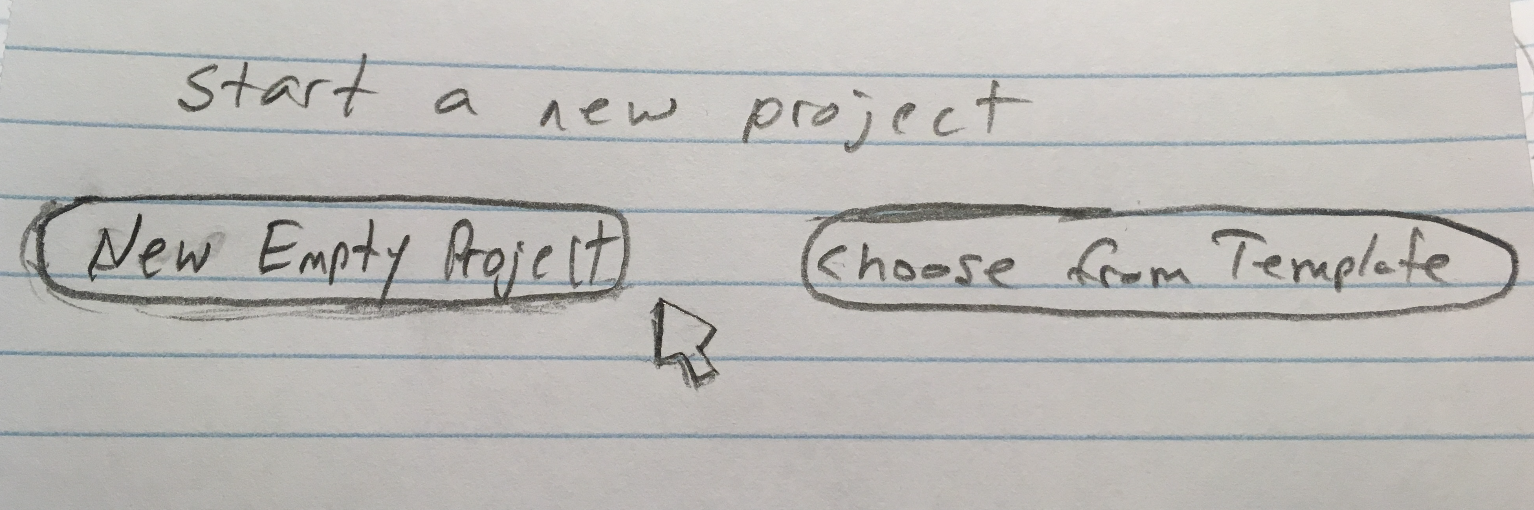 Start a new project
New Empty Project
Choose from Template